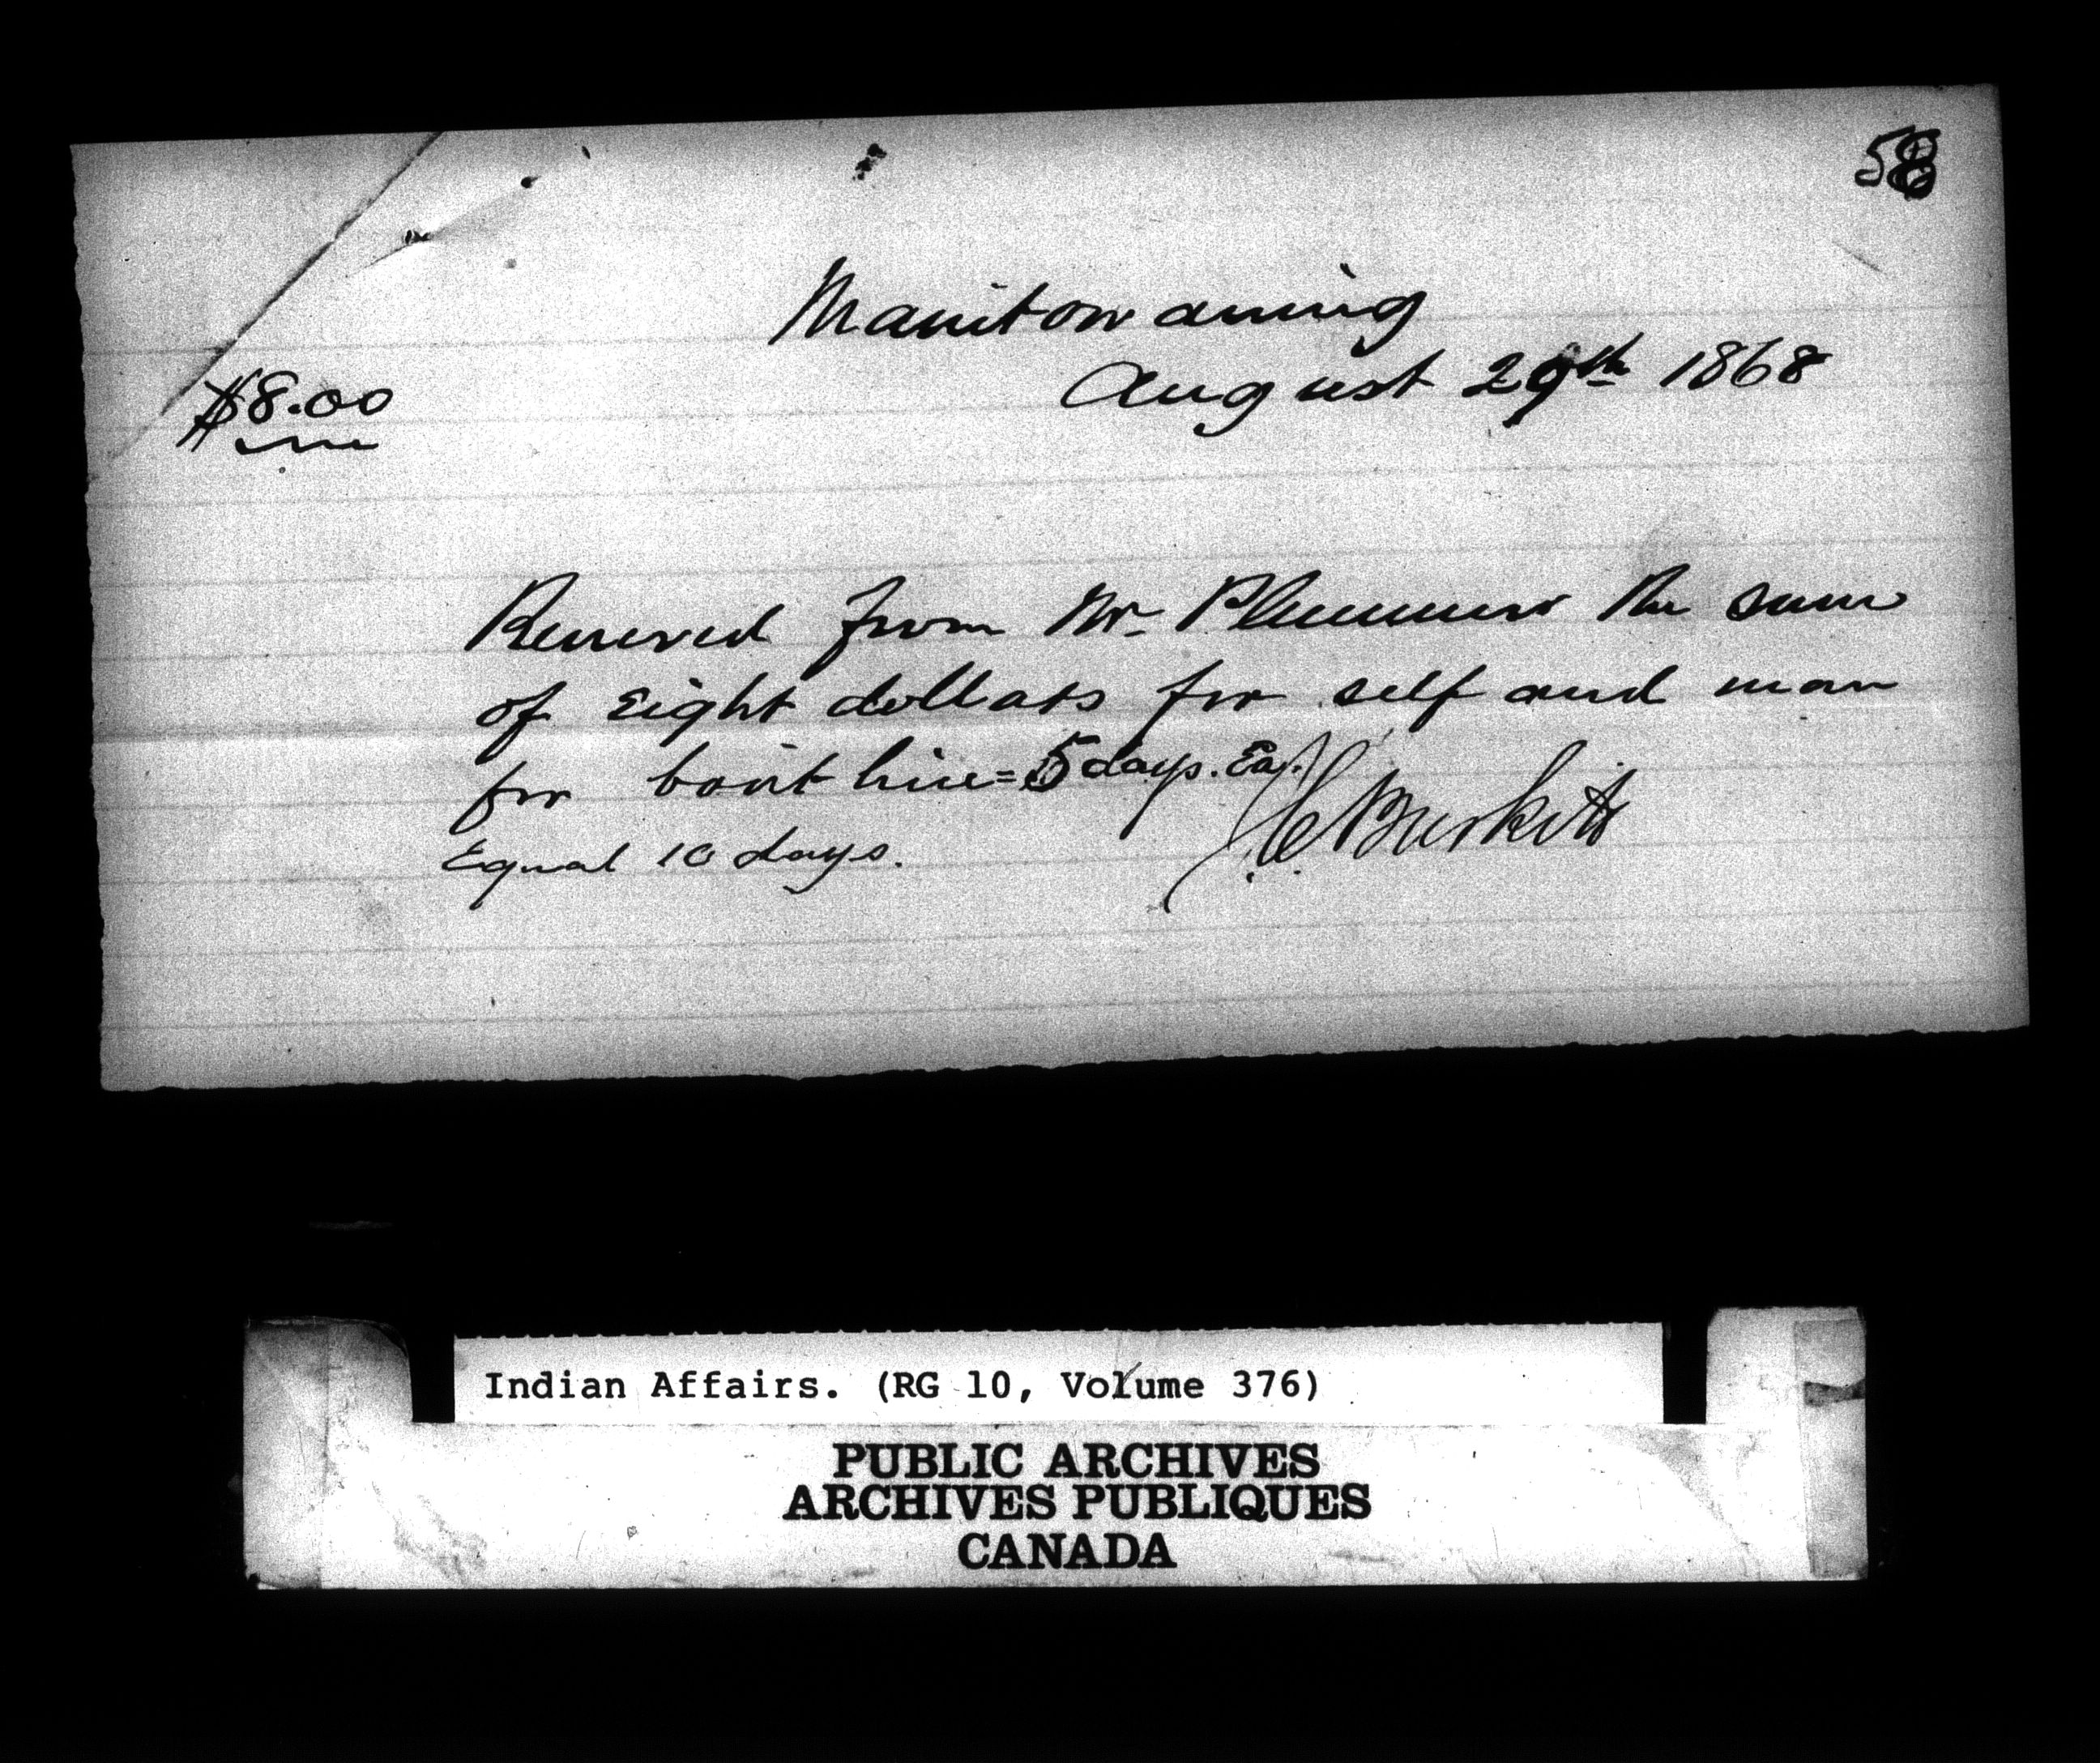 58
Manitowaning
August 29th 1868
$8.00
Received from Mr. Plummer the sum
of Eight dollars for self and man
for boat hire = 5 days. Ea.
J.C. Burkitt
Equal 10 days.
Indian Affairs. (RG 10, Volume 376)
PUBLIC ARCHIVES
ARCHIVES PUBLIQUES
CANADA